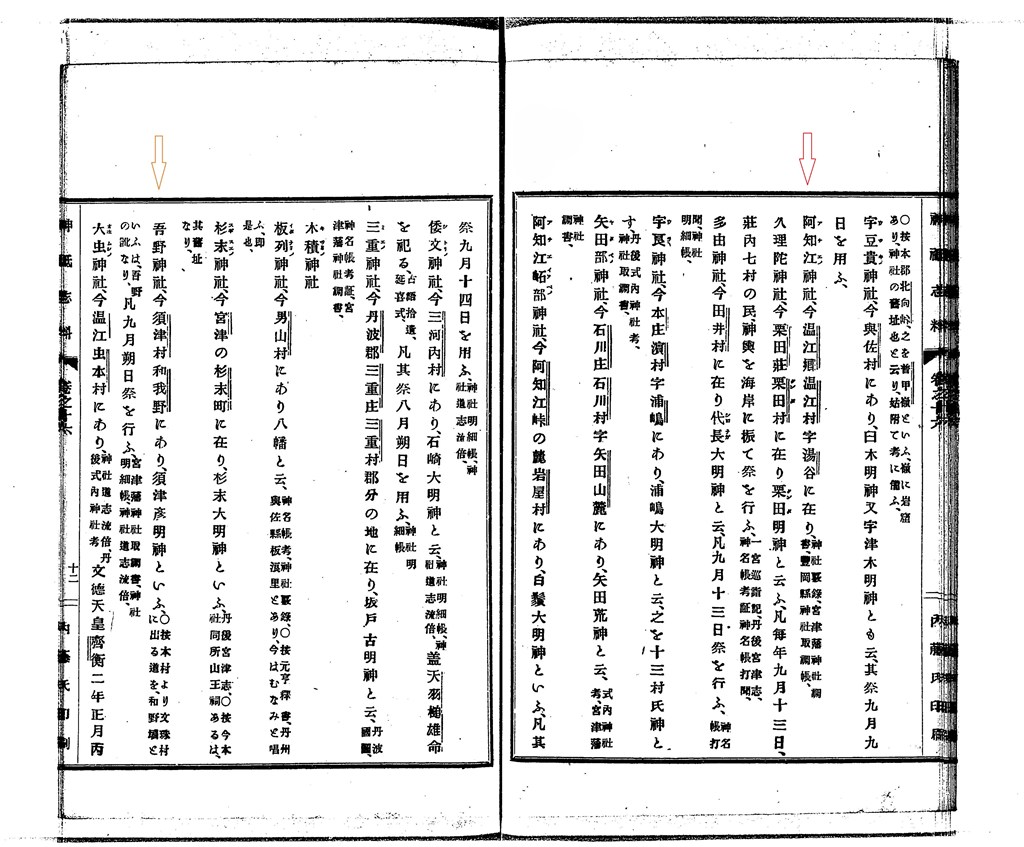 ○按本郡北向
あり、神社の舊址也と云り、姑附て考に備ふ、
宇豆貴神社、今與佐村にあり、臼木明神又宇津木明神とも云、其祭九月九
日を用ふ、
阿知江神社、今温江郷温江村字湯谷に在り、
久理陀神社、今栗田莊栗田村に在り栗田明神と云ふ、凡毎年九月十三日、
莊内七村の民、神輿を海岸に振て祭を行ふ、
多由神社、今田井村に在り代長大明神と云、凡九月十三日祭を行ふ、神名帳打
聞、神社明細帳、
宇良神社、今本庄濱村字浦嶋にあり、浦嶋大明神と云、之を十三村氏神と
す、丹後式内神社考、神社取調書、
矢田部神社、今石川庄石川村字矢田山麓にあり、矢田荒神と云、式内神社考、宮津藩
神社調書、
阿知江峅部神社、今阿知江峠の麓岩屋村にあり、白鬚大明神といふ、凡其
祭九月十四日を用ふ、神社明細帳、神社道志流倍、
倭文神社、今三河内村にあり、石崎大明神と云、神社明細帳、神社道志流倍、蓋天羽槌雄命
を祀る、古語拾遺、延喜式、凡其祭八月朔日を用ふ、神社明細帳
三重神社、今丹波郡三重庄三重村郡分の地に在り、坂戸古明神と云、丹波國圖、
神名帳考証、宮津藩神社調書、
木積神社
板列神社、今男山村にあり八幡と云、神名帳考、神社覈錄、○按元亨釋書、丹州與佐縣板浪里とあり、今はむなみと唱
ふ、即是也、
杉末神社、今宮津の杉末町に在り、杉末大明神といふ、丹後宮津志、○按今本社同所山王祠あるは、
其舊址なり、
吾野神社、今須津村和我野にあり、須津彦明神といふ、○按本村より文珠村に出る道を、和野墳と
いふは、吾野の訛なり、凡九月朔日祭を行ふ、宮津藩神社取調書、神社明細帳、神社道志流倍、
大虫神社、今温江虫本村にあり、神社道志流倍、丹後式内神社考 文德天皇齊衡二年正月丙
神祇志料
卷之十六
十二